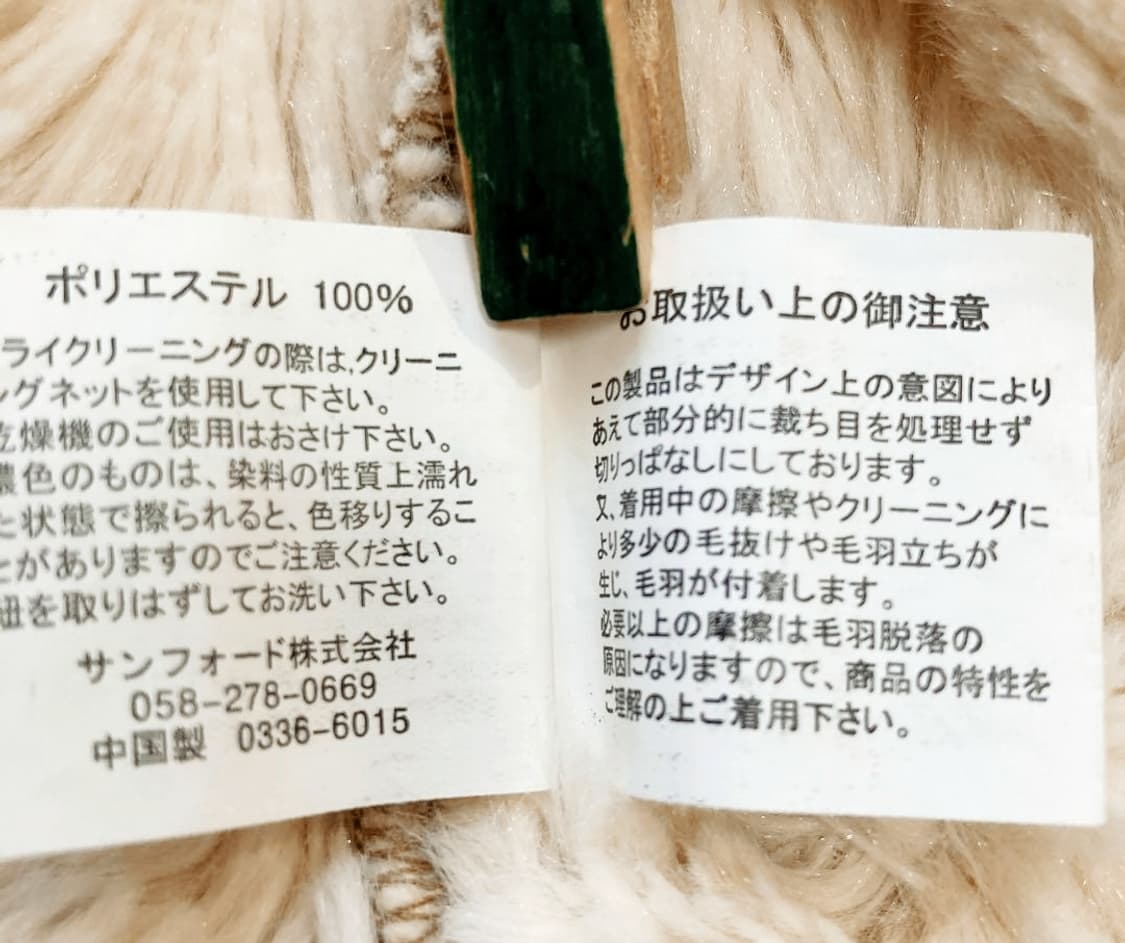 ポリエステル 100%
ライクリーニングの際は,クリーニ
ングネットを使用して下さい。
乾燥機のご使用はおさけ下さい。
濃色のものは、染料の性質上濡れ
た状態で擦られると、色移りするこ
とがありますのでご注意ください。
紐を取りはずしてお洗い下さい。
サンフォード株式会社
058-278-0669
中国製 0336-6015
お取扱い上の御注意
この製品はデザイン上の意図により
あえて部分的に裁ち目を処理せず
切りっぱなしにしております。
又、着用中の摩擦やクリーニングに
より多少の毛抜けや毛羽立ちが
生じ、毛羽が付着します。
必要以上の摩擦は毛羽脱落の
原因になりますので、商品の特性を
ご理解の上ご着用下さい。